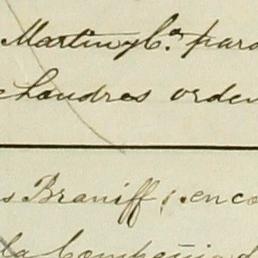 Martin y Ca. para
Londres orden
s Braniff; enco
la Compañia d